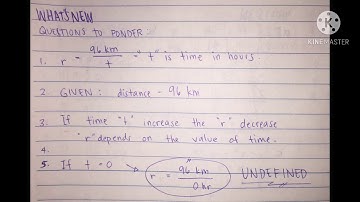 WHAT'S NEW
QUESTIONS TO PONDER:
1. r = 96 km / t = "t" is time in hours.
2. GIVEN: distance - 96 km
3. If time "t" increase the "r" decrease
"r" depends on the value of time.
4.
5. If t = 0 → r = 96 km / 0 hr UNDEFINED
KINEMASTER